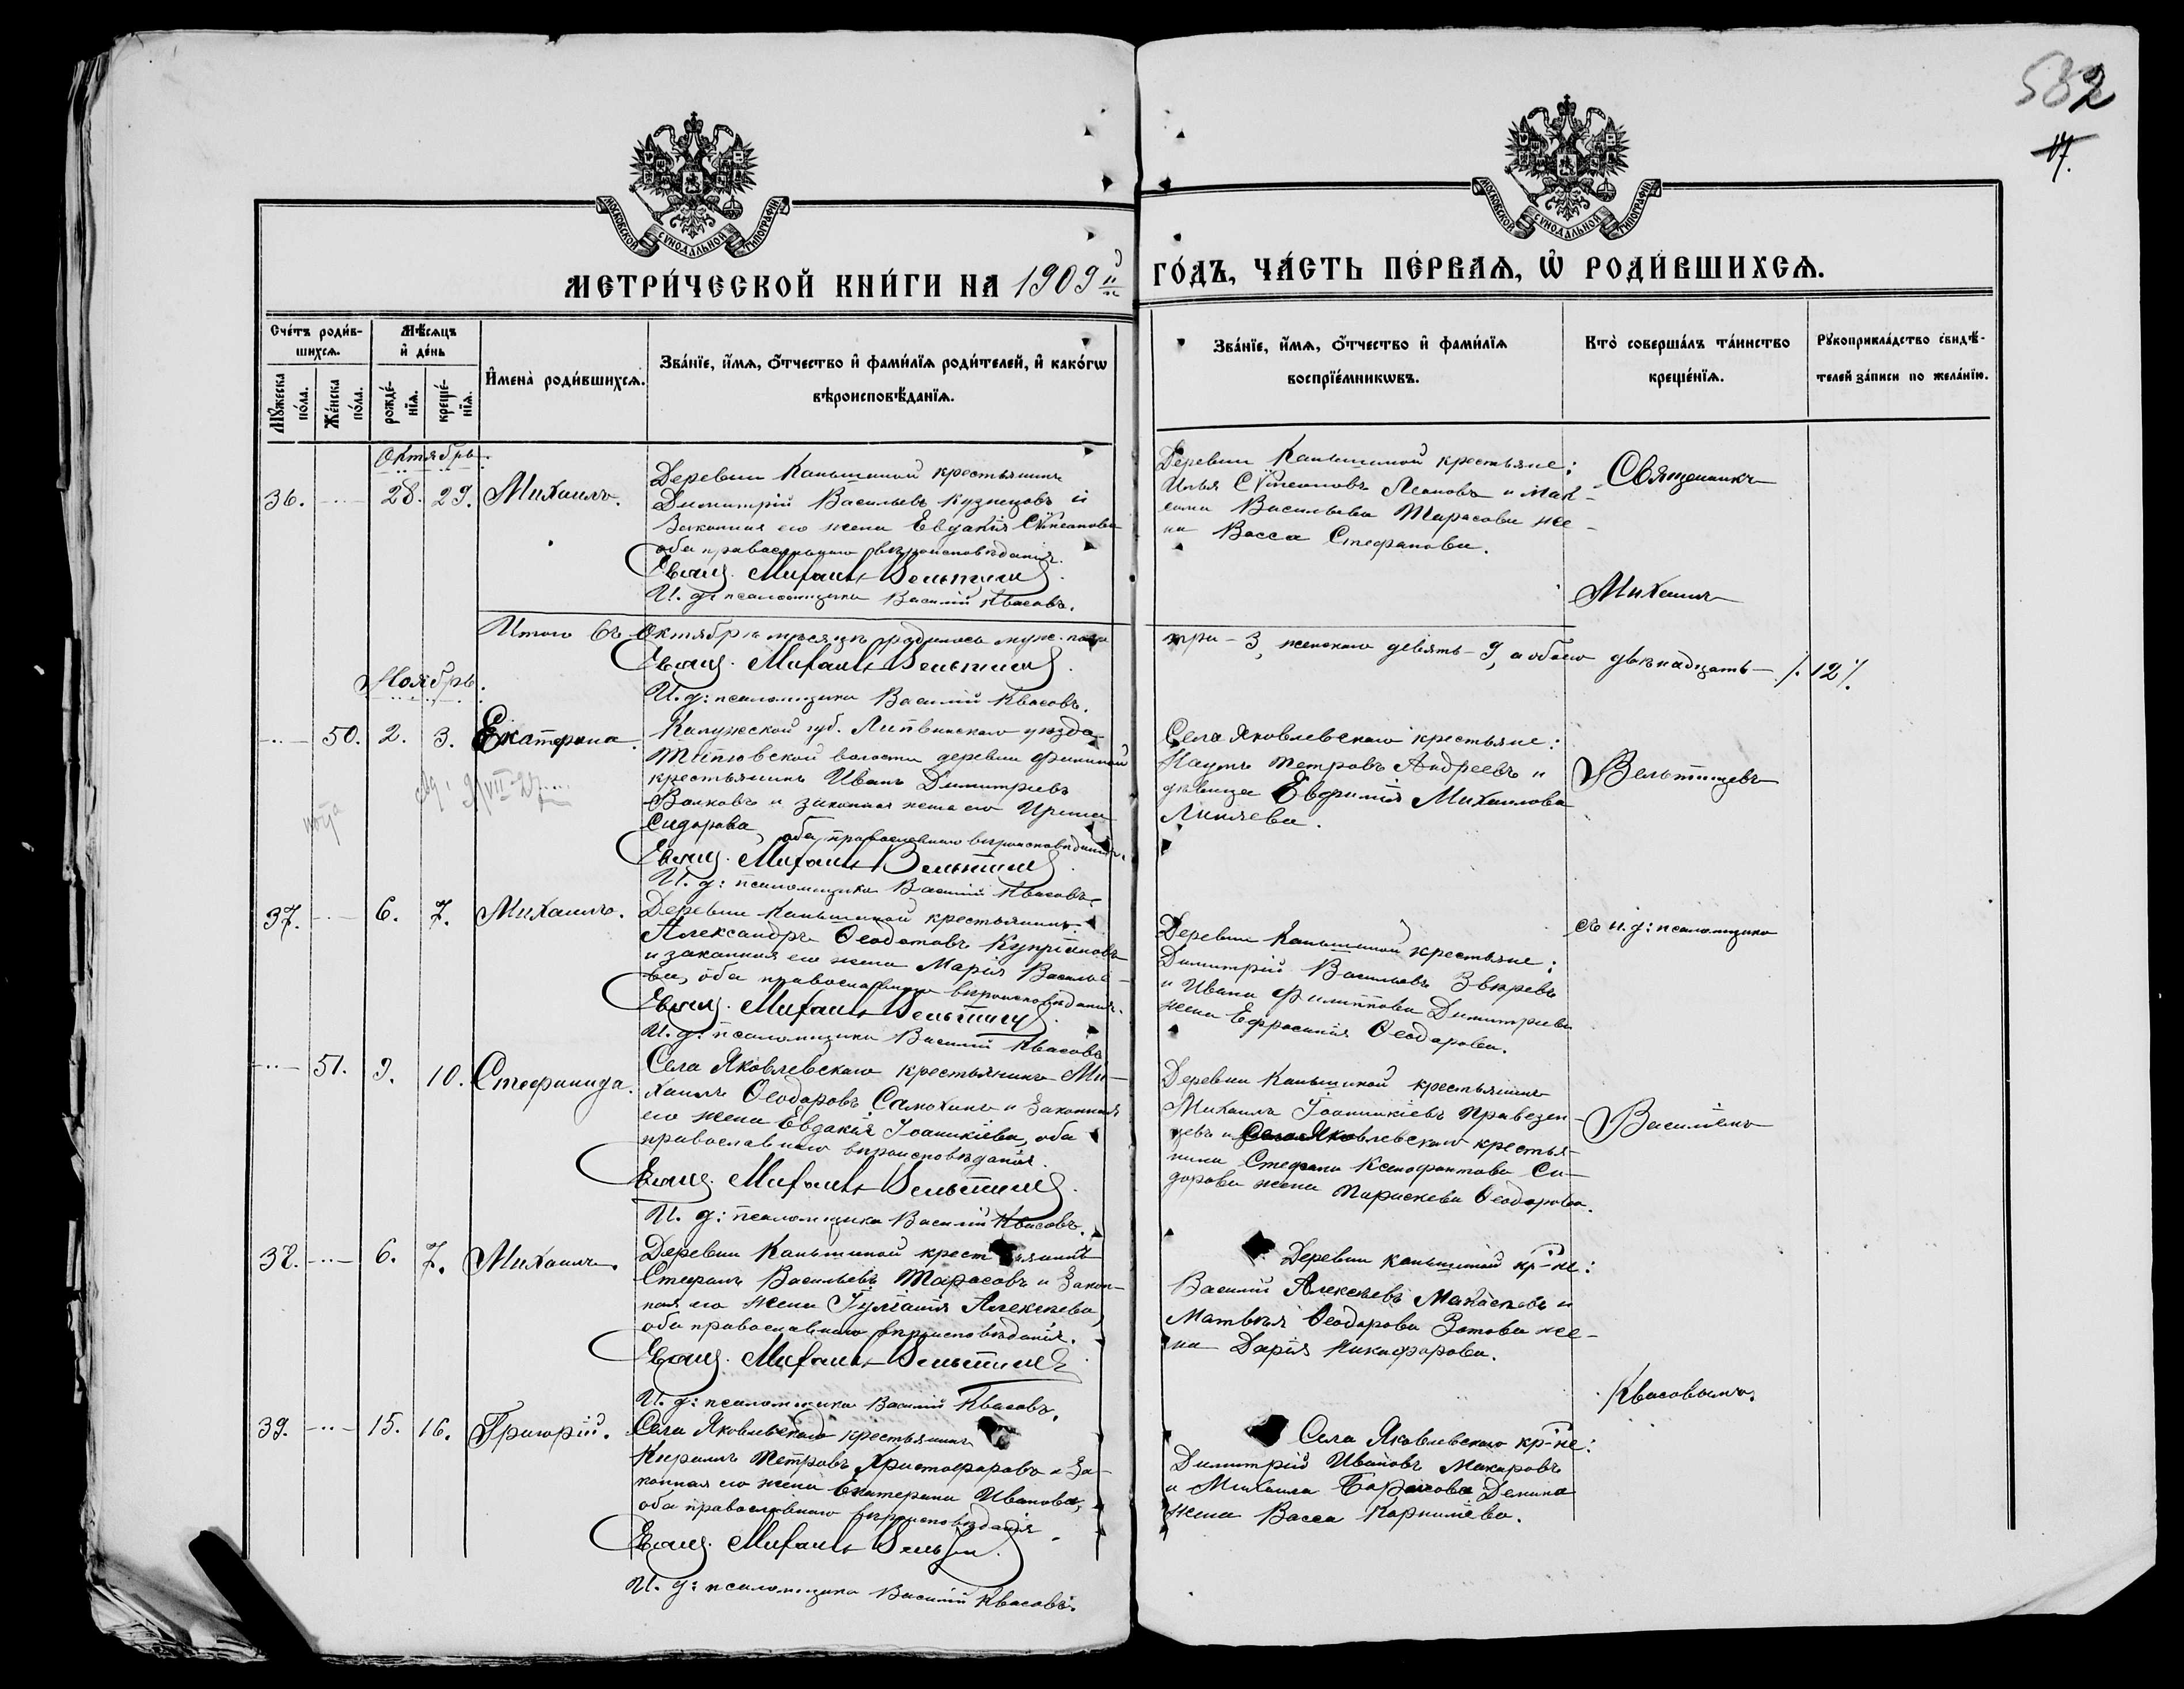 582
17.
МОСКОВСКОЙ СУНОДАЛЬНОЙ ТИПОГРАФІИ
МОСКОВСКОЙ СУНОДАЛЬНОЙ ТИПОГРАФІИ
МЕТРИ́ЧЕСКОЙ КНИ́ГИ НА 1909й ГО́ДЪ, ЧА́СТЬ ПЕ́РВАѦ, Ѡ҆ РОДИ́ВШИХСѦ.
Сче́тъ роди́в-
шихсѧ.
Мѣ́сѧцъ
и҆ де́нь
И҆мена̀ роди́вшихсѧ.
Зва́нїе, и҆́мѧ, ѻ҆́тчество и҆ фами́лїѧ роди́телей, и҆ како́гѡ
вѣроисповѣ́данїѧ.
Зва́нїе, и҆́мѧ, ѻ҆́тчество и҆ фами́лїѧ
воспрїе́мникѡвъ.
Кто̀ соверша́лъ та́инство
креще́нїѧ.
Рꙋкоприкла́дство свидѣ́-
телей за́писи по жела́нїю.
Мꙋ́жеска по́ла.
Же́нска по́ла.
рожде́-нїѧ.
креще́-нїѧ.
Октябрь.
36. 28. 29. Михаилъ.
Деревни Каньшиной крестьянинъ
Димитрій Васильевъ Кузнецовъ и
законная его жена Евдокія Стефанова
оба православнаго вѣроисповѣданія.
Свящ. Михаилъ Вельтищевъ.
И. д: псаломщика Василій Квасовъ.
Деревни Каньшиной крестьяне:
Илья Леоновъ и Мак-
сима Васильева Тарасова же-
на Васса Стефанова.
Священникъ
Михаилъ
Итого въ Октябрѣ мѣсяцѣ родилось муж. пола три - 3, женскаго девять - 9, а обоего двѣнадцать - /. 12 /.
Свящ. Михаилъ Вельтищевъ.
И. д: псаломщика Василій Квасовъ.
Ноябрь.
50. 2. 3. Екатерина.
Калужской губ. Лихвинскаго уѣзда
волости деревни
крестьянинъ Иванъ Димитріевъ
Волковъ и законная жена его Ирина
Сидорова, оба православнаго вѣроисповѣданія.
Свящ. Михаилъ Вельтищевъ
И. д: псаломщика Василій Квасовъ.
Села Яковлевскаго крестьяне:
Наумъ Петровъ Андреевъ и
дѣвица Евфимія Михаилова
Вельтищевъ
37. 6. 7. Михаилъ.
Деревни Каньшиной крестьянинъ
Александръ Ѳеодотовъ Купріяновъ
и законная его жена Марія Василье-
ва, оба православнаго вѣроисповѣданія.
Свящ. Михаилъ Вельтищевъ.
И. д: псаломщика Василій Квасовъ
Деревни Каньшиной крестьяне:
Димитрій Васильевъ Звѣревъ
и Ивана Филиппова Димитріева
жена Ефросинія Ѳеодорова.
съ и. д: псаломщика
51. 9. 10. Стефанида.
Села Яковлевскаго крестьянинъ Ми-
хаилъ Ѳеодоровъ Самохинъ и законная
его жена Евдокія Іоаникіева, оба
православнаго вѣроисповѣданія.
Свящ. Михаилъ Вельтищевъ.
И. д: псаломщика Василій Квасовъ.
Деревни Каньшиной крестьянинъ
Михаилъ Іоаникіевъ Праведен-
цевъ и Села Яковлевскаго крестья-
нина Стефана Ксенофонтова Си-
дорова жена Параскева Ѳеодорова.
Василіемъ
38. 6. 7. Михаилъ.
Деревни Каньшиной крестьянинъ
Стефанъ Васильевъ Тарасовъ и закон-
ная его жена Іуліанія Алексѣева,
оба православнаго вѣроисповѣданія.
Свящ. Михаилъ Вельтищевъ
И. д: псаломщика Василій Квасовъ.
Деревни Каньшиной кр-не:
Василій Алексѣевъ и
Матвѣя Ѳеодорова Зотова же-
на Дарія Никифорова.
Квасовымъ.
39. 15. 16. Григорій.
Села Яковлевскаго крестьянинъ
Кириллъ Петровъ Христофоровъ и за-
конная его жена Екатерина Иванова,
оба православнаго вѣроисповѣданія
Свящ. Михаилъ Вельтищ.
И. д: псаломщика Василій Квасовъ.
Села Яковлевскаго кр-не:
Димитрій Ивановъ Макаровъ
и Михаила Борисова Демина
жена Васса Корнилієва.